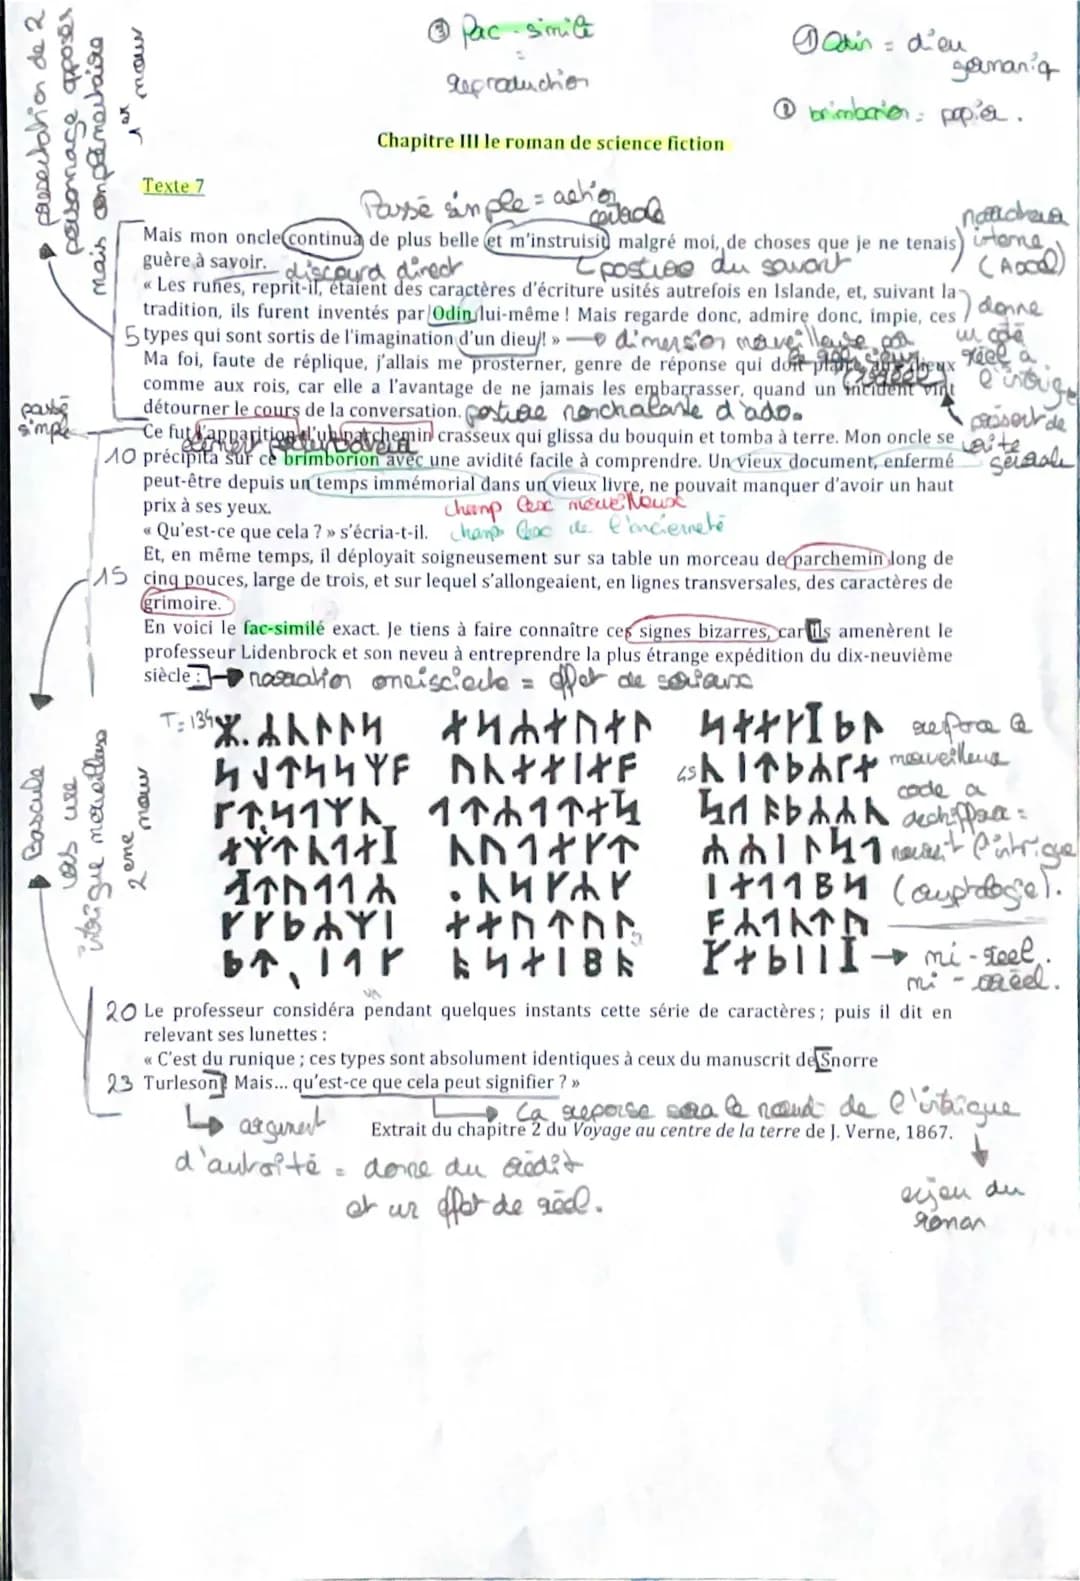 ③ Fac-simile
=
Reproduction
① Odin = dieu
germaniq
② brimborion = papier.
Chapitre III le roman de science fiction
presentation de 2
personnage opposés
mais complémentaire
1er mouv
Texte 7
Passé simple = action
narrateur
interne
Mais mon oncle continua de plus belle et m'instruisit malgré moi, de choses que je ne tenais
guère à savoir.
discours direct
posture du savant
« Les runes, reprit-il, étaient des caractères d'écriture usités autrefois en Islande, et, suivant la
tradition, ils furent inventés par Odin lui-même ! Mais regarde donc, admire donc, impie, ces
5 types qui sont sortis de l'imagination d'un dieu ! »
dimension merveilleuse
donne
un côté
réel a
l'intrigue
Ma foi, faute de réplique, j'allais me prosterner, genre de réponse qui doit plaire aux dieux
comme aux rois, car elle a l'avantage de ne jamais les embarrasser, quand un incident vint
détourner le cours de la conversation.
posture nonchalante d'ado.
passé
simple
Ce fut l'apparition d'un parchemin crasseux qui glissa du bouquin et tomba à terre. Mon oncle se
élément perturbateur
10 précipita sur ce brimborion avec une avidité facile à comprendre. Un vieux document, enfermé
peut-être depuis un temps immémorial dans un vieux livre, ne pouvait manquer d'avoir un haut
prix à ses yeux.
champ lex merveilleux
« Qu'est-ce que cela ? » s'écria-t-il.
champ lex de l'ancienneté
Et, en même temps, il déployait soigneusement sur sa table un morceau de parchemin long de
15 cinq pouces, large de trois, et sur lequel s'allongeaient, en lignes transversales, des caractères de
grimoire.
En voici le fac-similé exact. Je tiens à faire connaître ces signes bizarres, car ils amenèrent le
professeur Lidenbrock et son neveu à entreprendre la plus étrange expédition du dix-neuvième
siècle :
narration omnisciente = effet de sérieux
Bascule
vers une
intrigue merveilleuse
2ene mouv
renforce le
merveilleux
code a
dechiffrer =
nourrit l'intrigue
(cryptologie).
mi-reel.
mi-irréel.
20 Le professeur considéra pendant quelques instants cette série de caractères ; puis il dit en
relevant ses lunettes :
« C'est du runique ; ces types sont absolument identiques à ceux du manuscrit de Snorre
23 Turleson ! Mais... qu'est-ce que cela peut signifier ? »
La reponse sera le nœud de l'intrigue
argument
d'autorité = donne du crédit
et un effet de réel.
Extrait du chapitre 2 du Voyage au centre de la terre de J. Verne, 1867.
enjeu du
roman